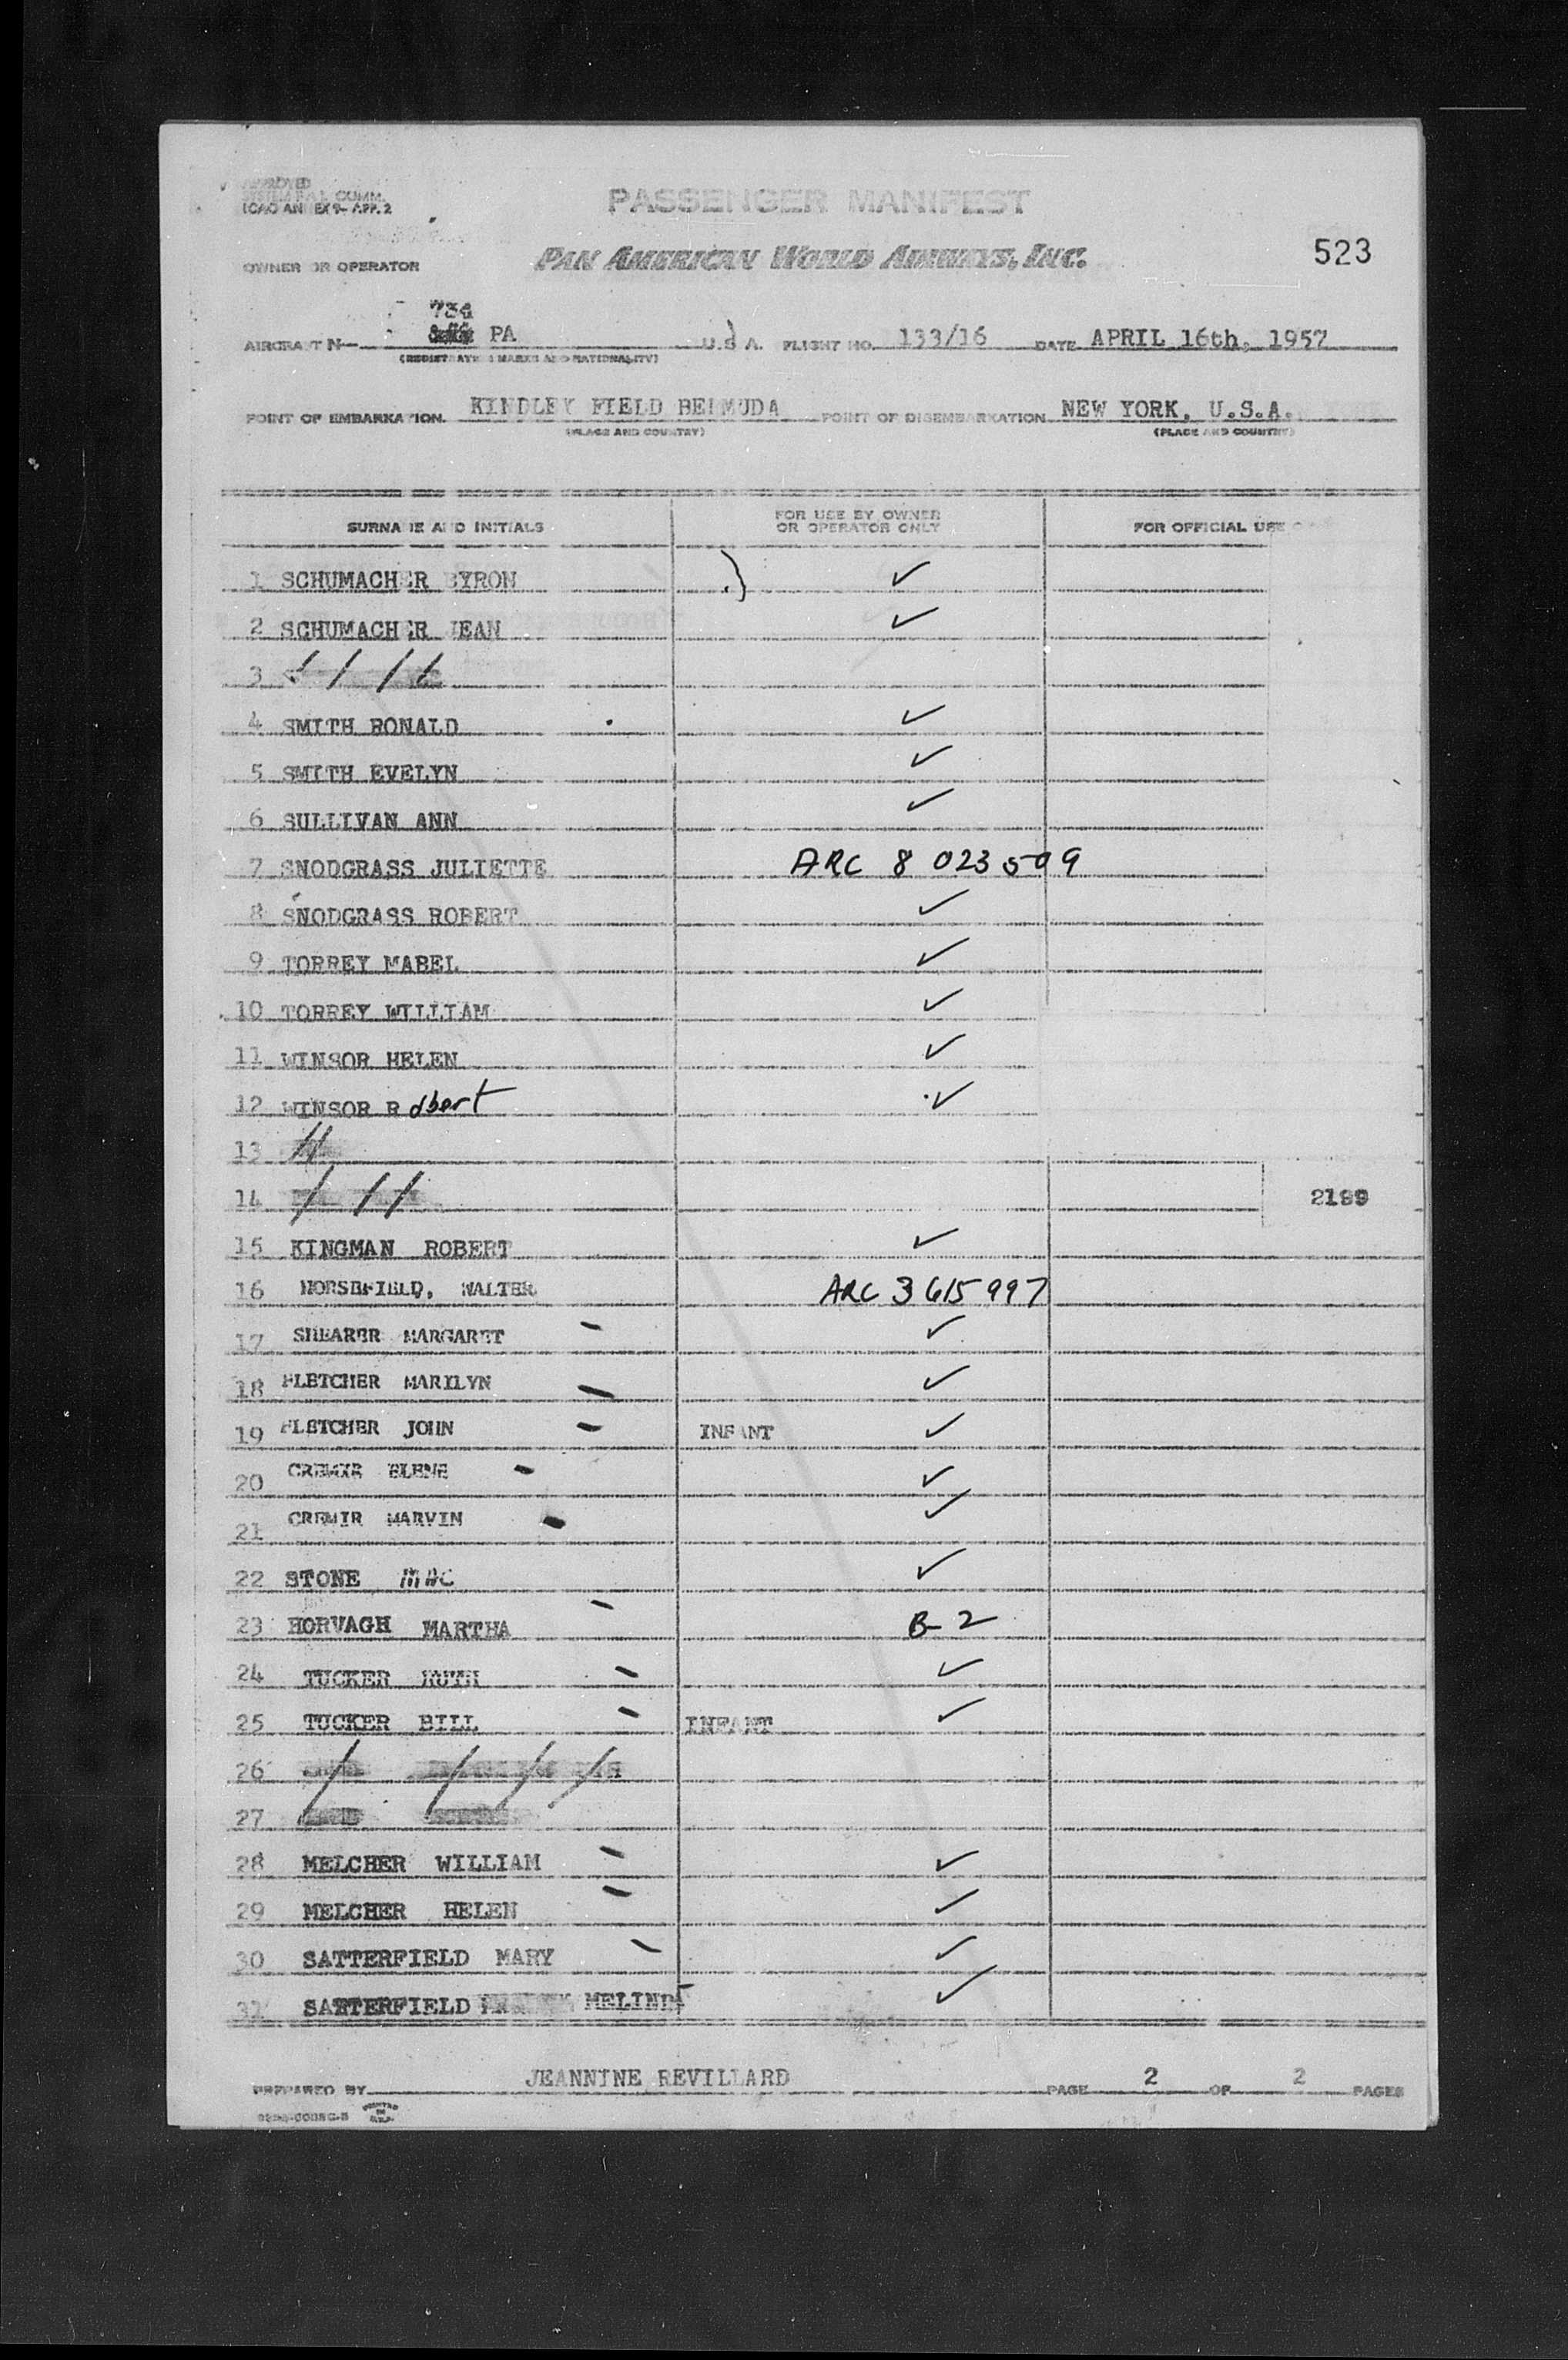 APPROVED
SYSTEM F.A.L. COMM.
ICAO ANNEX 9- APP. 2
PASSENGER MANIFEST
OWNER OR OPERATOR PAN AMERICAN WORLD AIRWAYS, INC. 523
734
AIRCRAFT N— PA U.S.A. FLIGHT NO. 133/16 DATE APRIL 16th, 1957
(REGISTRATION MARKS AND NATIONALITY)
POINT OF EMBARKATION KINDLEY FIELD BERMUDA POINT OF DISEMBARKATION NEW YORK, U.S.A.
(PLACE AND COUNTRY) (PLACE AND COUNTRY)
SURNAME AND INITIALS FOR USE BY OWNER OR OPERATOR ONLY FOR OFFICIAL USE O
1 SCHUMACHER BYRON ✓
2 SCHUMACHER JEAN ✓
3
4 SMITH RONALD ✓
5 SMITH EVELYN ✓
6 SULLIVAN ANN ✓
7 SNODGRASS JULIETTE ARC 8 023 509
8 SNODGRASS ROBERT ✓
9 TORREY MABEL ✓
10 TORREY WILLIAM ✓
11 WINSOR HELEN ✓
12 WINSOR Robert ✓
13
14 2199
15 KINGMAN ROBERT ✓
16 HORSEFIELD, WALTER ARC 3 615 997
17 SHEARER MARGARET ✓
18 FLETCHER MARILYN ✓
19 FLETCHER JOHN INFANT ✓
20 CREMIR ELENE ✓
21 CREMIR MARVIN ✓
22 STONE MAC ✓
23 HORVAGH MARTHA B-2
24 TUCKER RUTH ✓
25 TUCKER BILL INFANT ✓
26
27
28 MELCHER WILLIAM ✓
29 MELCHER HELEN ✓
30 SATTERFIELD MARY ✓
31 SATTERFIELD MELINDA ✓
PREPARED BY JEANNINE REVILLARD PAGE 2 OF 2 PAGES
PRINTED IN U.S.A.